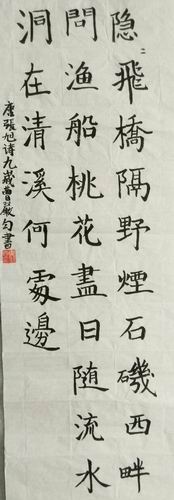 隐〻飛橋隔野煙石磯西畔
問渔船桃花盡日随流水
洞在清溪何處邊
唐張旭诗九歲曹書